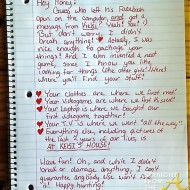 Hey Honey!
Guess who left his Facebook
open on the computer and got a
message from
But don't worry, I didn't
break anything! Actually I was
nice enough to package your
things! And I even invented a neat
game, since I know you like
looking for things (like other girls). Here's
where you'll find your stuff:
Your clothes are where we first
Your videogames are where we first
Your Laptop is where we bought our
first videogame together!
Your T.V is where we went "all the way."
Everything else, including pictures of
the last 2 years of our lives, is
AT HOUSE!
Have fun! Oh, and while I didn't
break or damage anything, I can't
guarantee anybody else won't
Happy hunting!